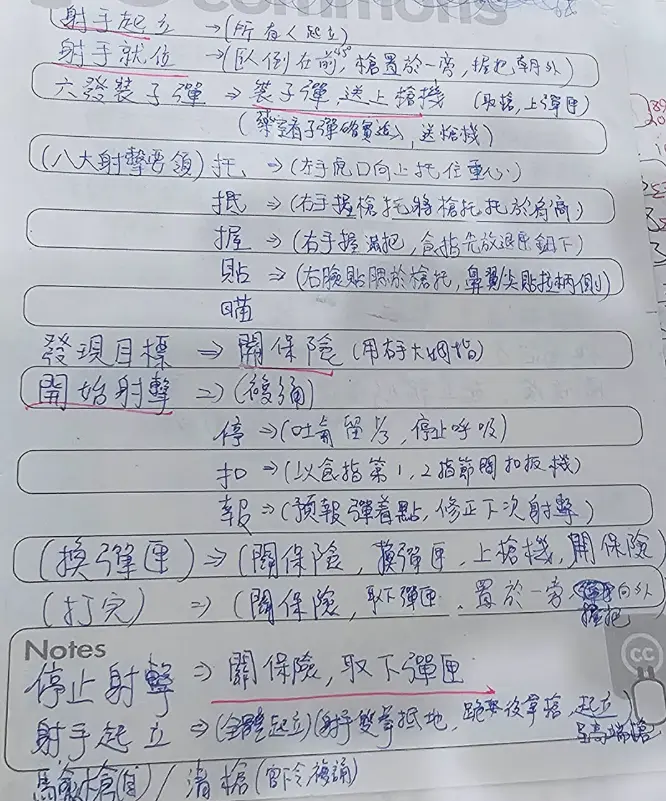 commons
射手起立 →(所有人起立)
射手就位 →(臥倒在前45°,槍置於一旁,握把朝外)
六發裝子彈 ⇒ 裝子彈,送上槍機 (取槍,上彈匣)
(藥室看子彈確實進入,送槍機)
(八大射擊要領) 托、⇒(左手虎口向上托住重心)
抵 ⇒(右手握槍托將槍托托於肩窩)
握 ⇒(右手握滿把,食指先放退匣鈕下)
貼 ⇒(右臉貼腮於槍托,鼻翼尖貼拉柄側)
瞄
發現目標 ⇒ 關保險 (用右手大姆指)
開始射擊 ⇒(複誦)
停 ⇒(吐氣留1/3,停止呼吸)
扣 ⇒(以食指第1,2指節間扣扳機)
報 ⇒(預報彈着點,修正下次射擊)
(換彈匣) ⇒(關保險,換彈匣,上槍機,開保險)
(打完) ⇒(關保險,取下彈匣,置於一旁 向外
握把
Notes
停止射擊 ⇒ 關保險,取下彈匣
射手起立 ⇒(全體起立)(射手雙掌抵地,跪姿後拿槍,起立
呈高端槍
驗槍(蹲)/清槍(口令複誦)
cc